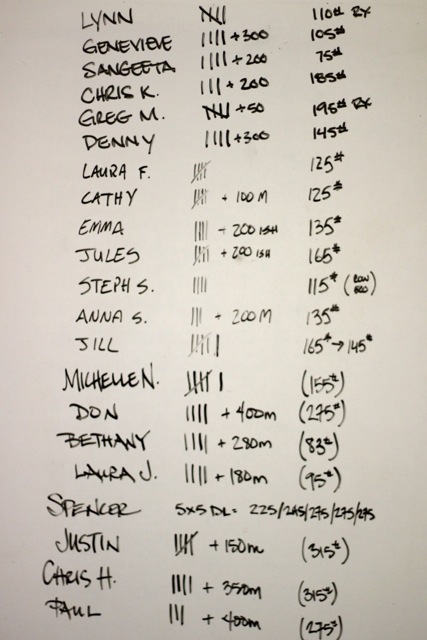 LYNN 𝍸 110# RX
GENEVIEVE |||| +300 105#
SANGEETA |||| +200 75#
CHRIS K. ||| +200 185#
GREG M. 𝍸 +50 195# RX
DENNY |||| +300 145#
LAURA F. 𝍸 125#
CATHY 𝍸 + 100M 125#
EMMA |||| + 200 ISH 135#
JULES 𝍸 + 200 ISH 165#
STEPH S. |||| 115# (ROW ERG)
ANNA S. ||| + 200M 135#
JILL 𝍸 | 165# → 145#
MICHELLE N. 𝍸 | (155#)
DON |||| + 400m (275#)
BETHANY |||| + 280m (83#)
LAURA J. |||| + 180m (95#)
SPENCER 5x5 DL = 225/245/275/275/275
JUSTIN 𝍸 + 150m (315#)
CHRIS H. |||| + 350m (315#)
PAUL ||| + 400m (275#)